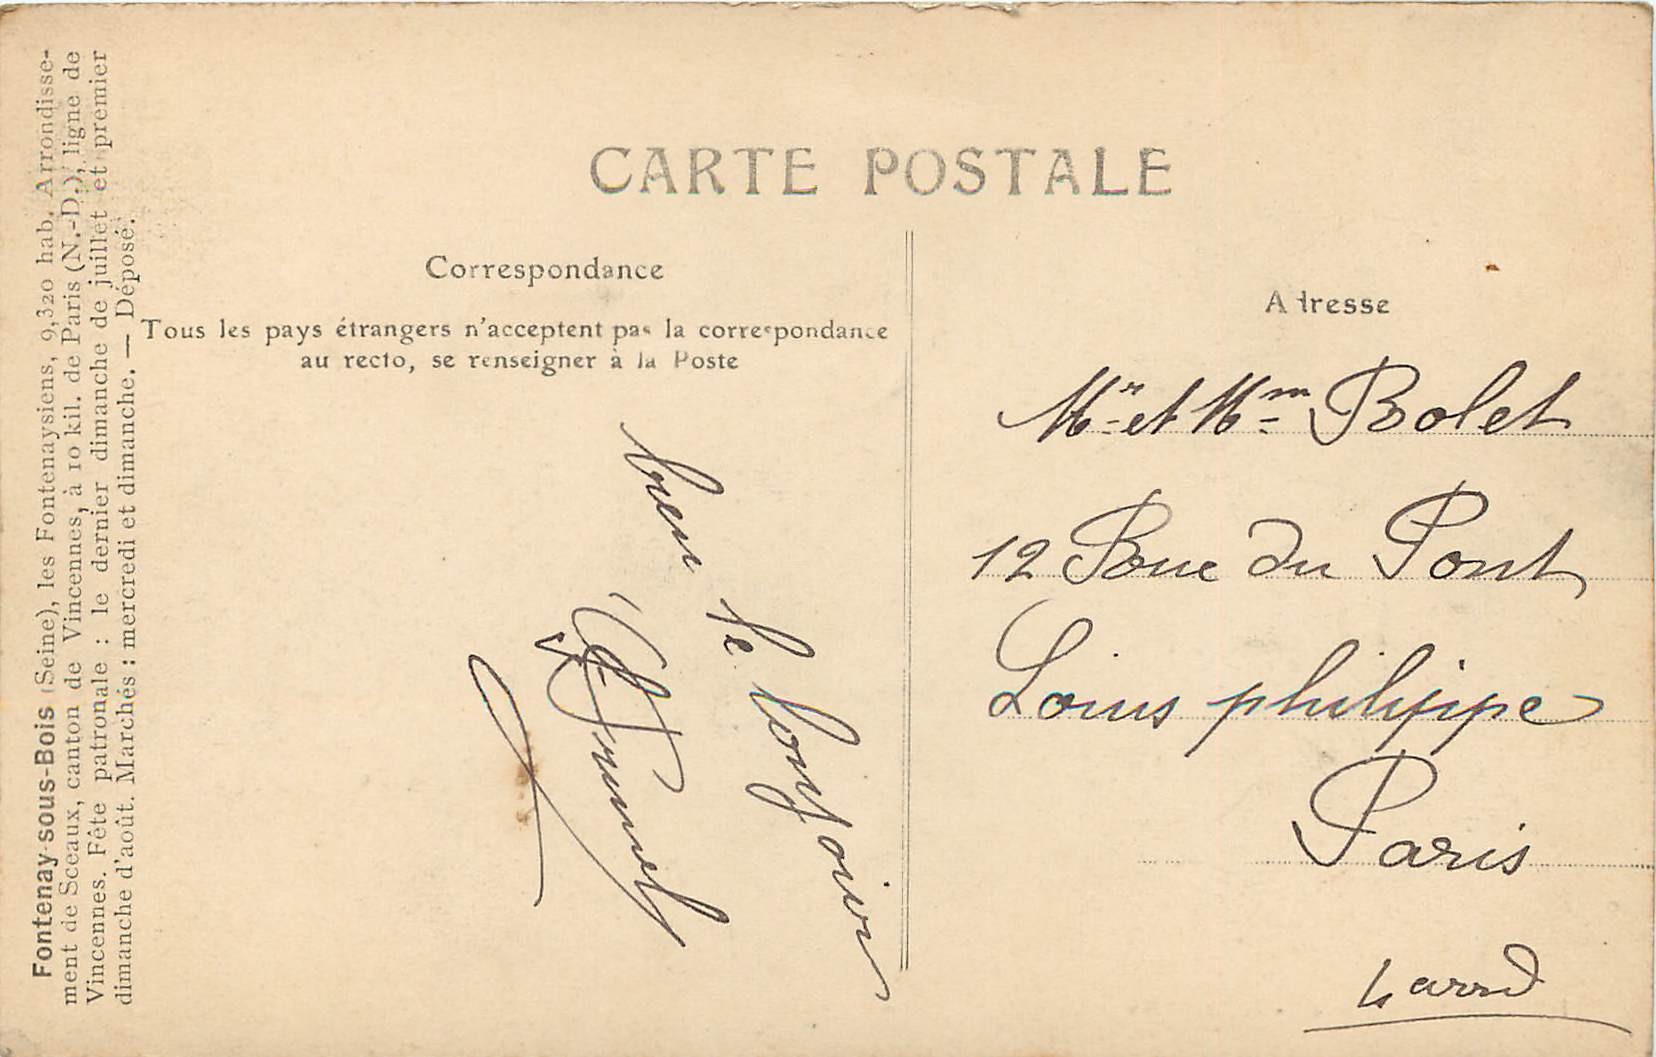 Fontenay-sous-Bois (Seine), les Fontenaysiens, 9,320 hab. Arrondisse-
ment de Sceaux, canton de Vincennes, à 10 kil. de Paris (N.-D.), ligne de
Vincennes. Fête patronale : le dernier dimanche de juillet et premier
dimanche d'août. Marchés : mercredi et dimanche. — Déposé.
CARTE POSTALE
Correspondance
Tous les pays étrangers n'acceptent pas la correspondance
au recto, se renseigner à la Poste
bien le bonjour
Brunet
Adresse
Mr et Mme Bolet
12 Rue du Pont
Louis philippe
Paris
4 arrd